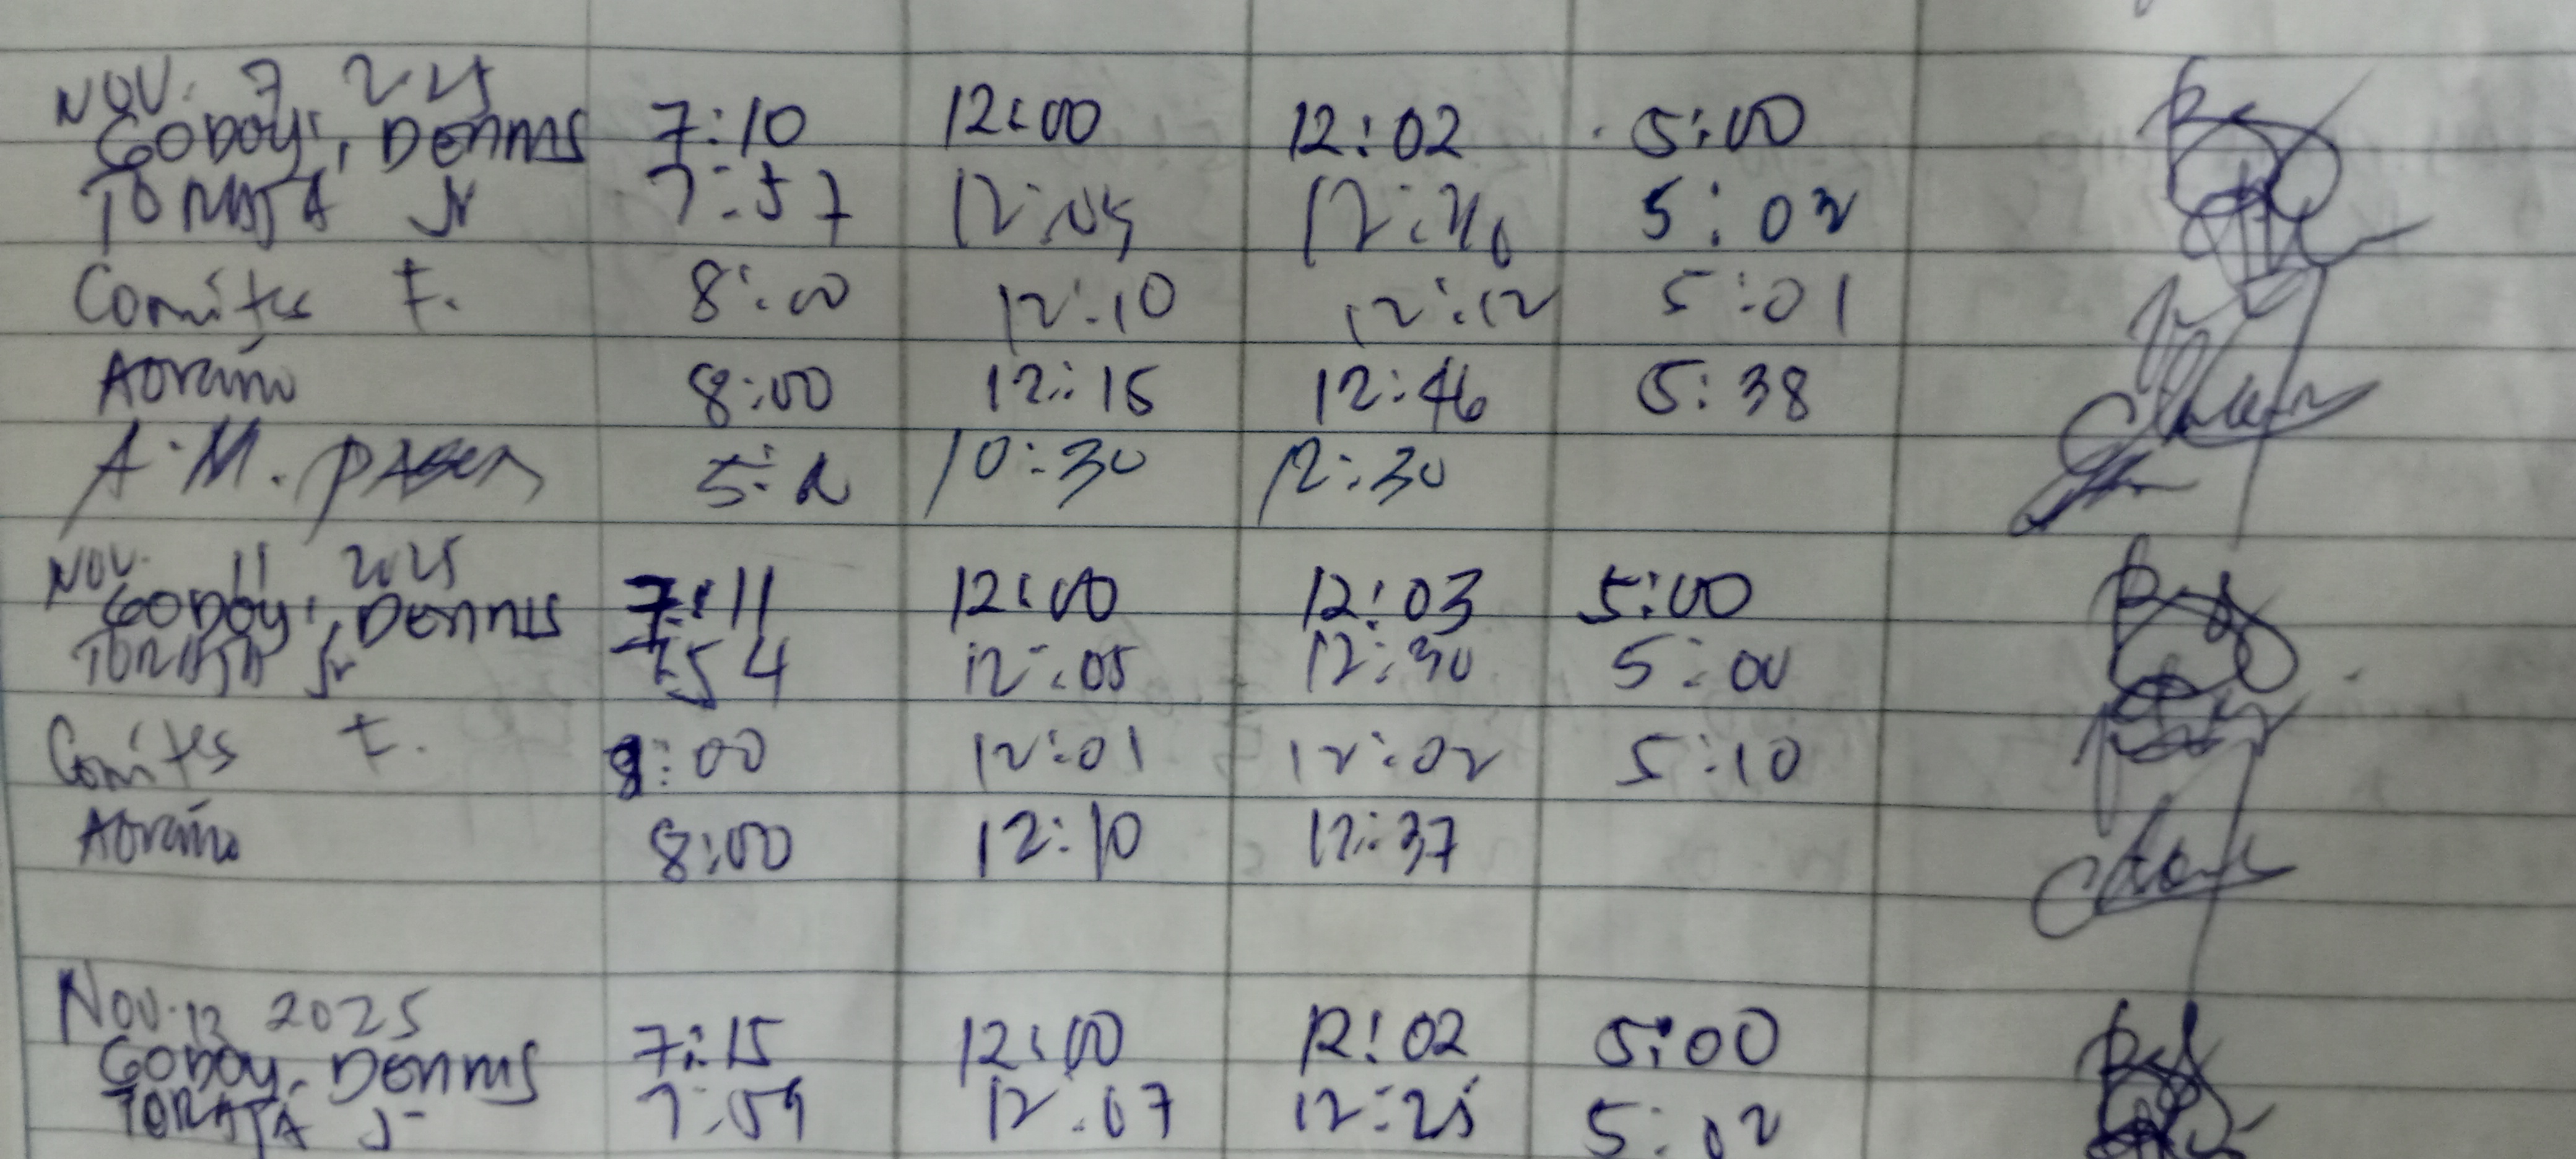 NOV. 7 2025
GODOY, DENNIS 7:10 12:00 12:02 5:00
TORAJA Jr 7:57 12:05 5:02
Comites F. 8:00 12:10 12:12 5:01
Adraino 8:00 12:15 12:46 5:38
A.M. 10:30 12:30
NOV. 11 2025
GODOY, DENNIS 7:11 12:00 12:03 5:00
TORAJA Jr 7:54 12:05 12:30 5:00
Comites F. 8:00 12:01 12:02 5:10
Adraino 8:00 12:10 12:37
Nov. 12 2025
GODOY, DENNIS 7:15 12:00 12:02 5:00
TORAJA Jr 7:59 12:07 12:25 5:02